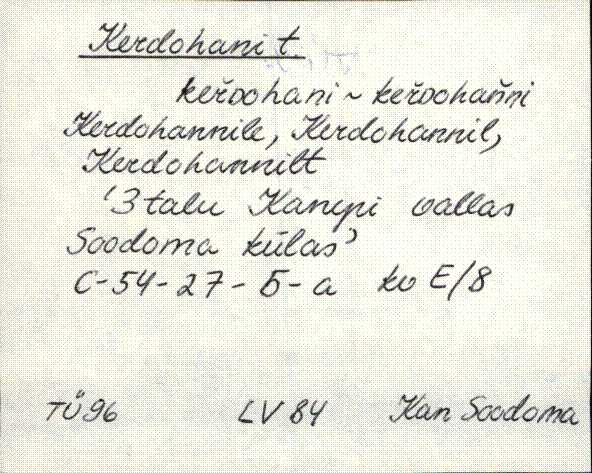 Kerdohani t
keřᴅohani ~ keřᴅohan̆ni
Kerdohannile, Kerdohannil,
Kerdohannilt
'3 talu Kanepi vallas
Soodoma külas'
C-54-27-Б-a ko E/8
TÜ96 LV 84 Kan Soodoma